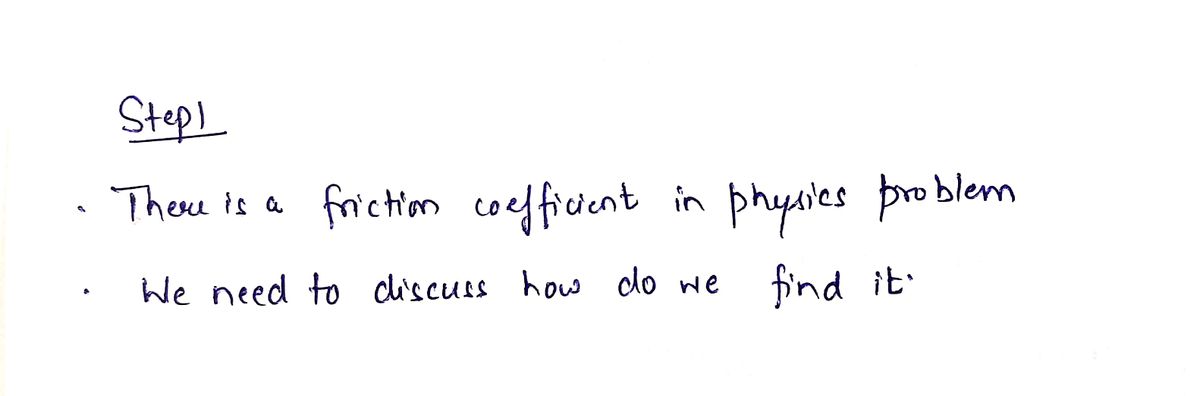 Step1
· There is a friction coefficient in physics problem
· We need to discuss how do we find it.